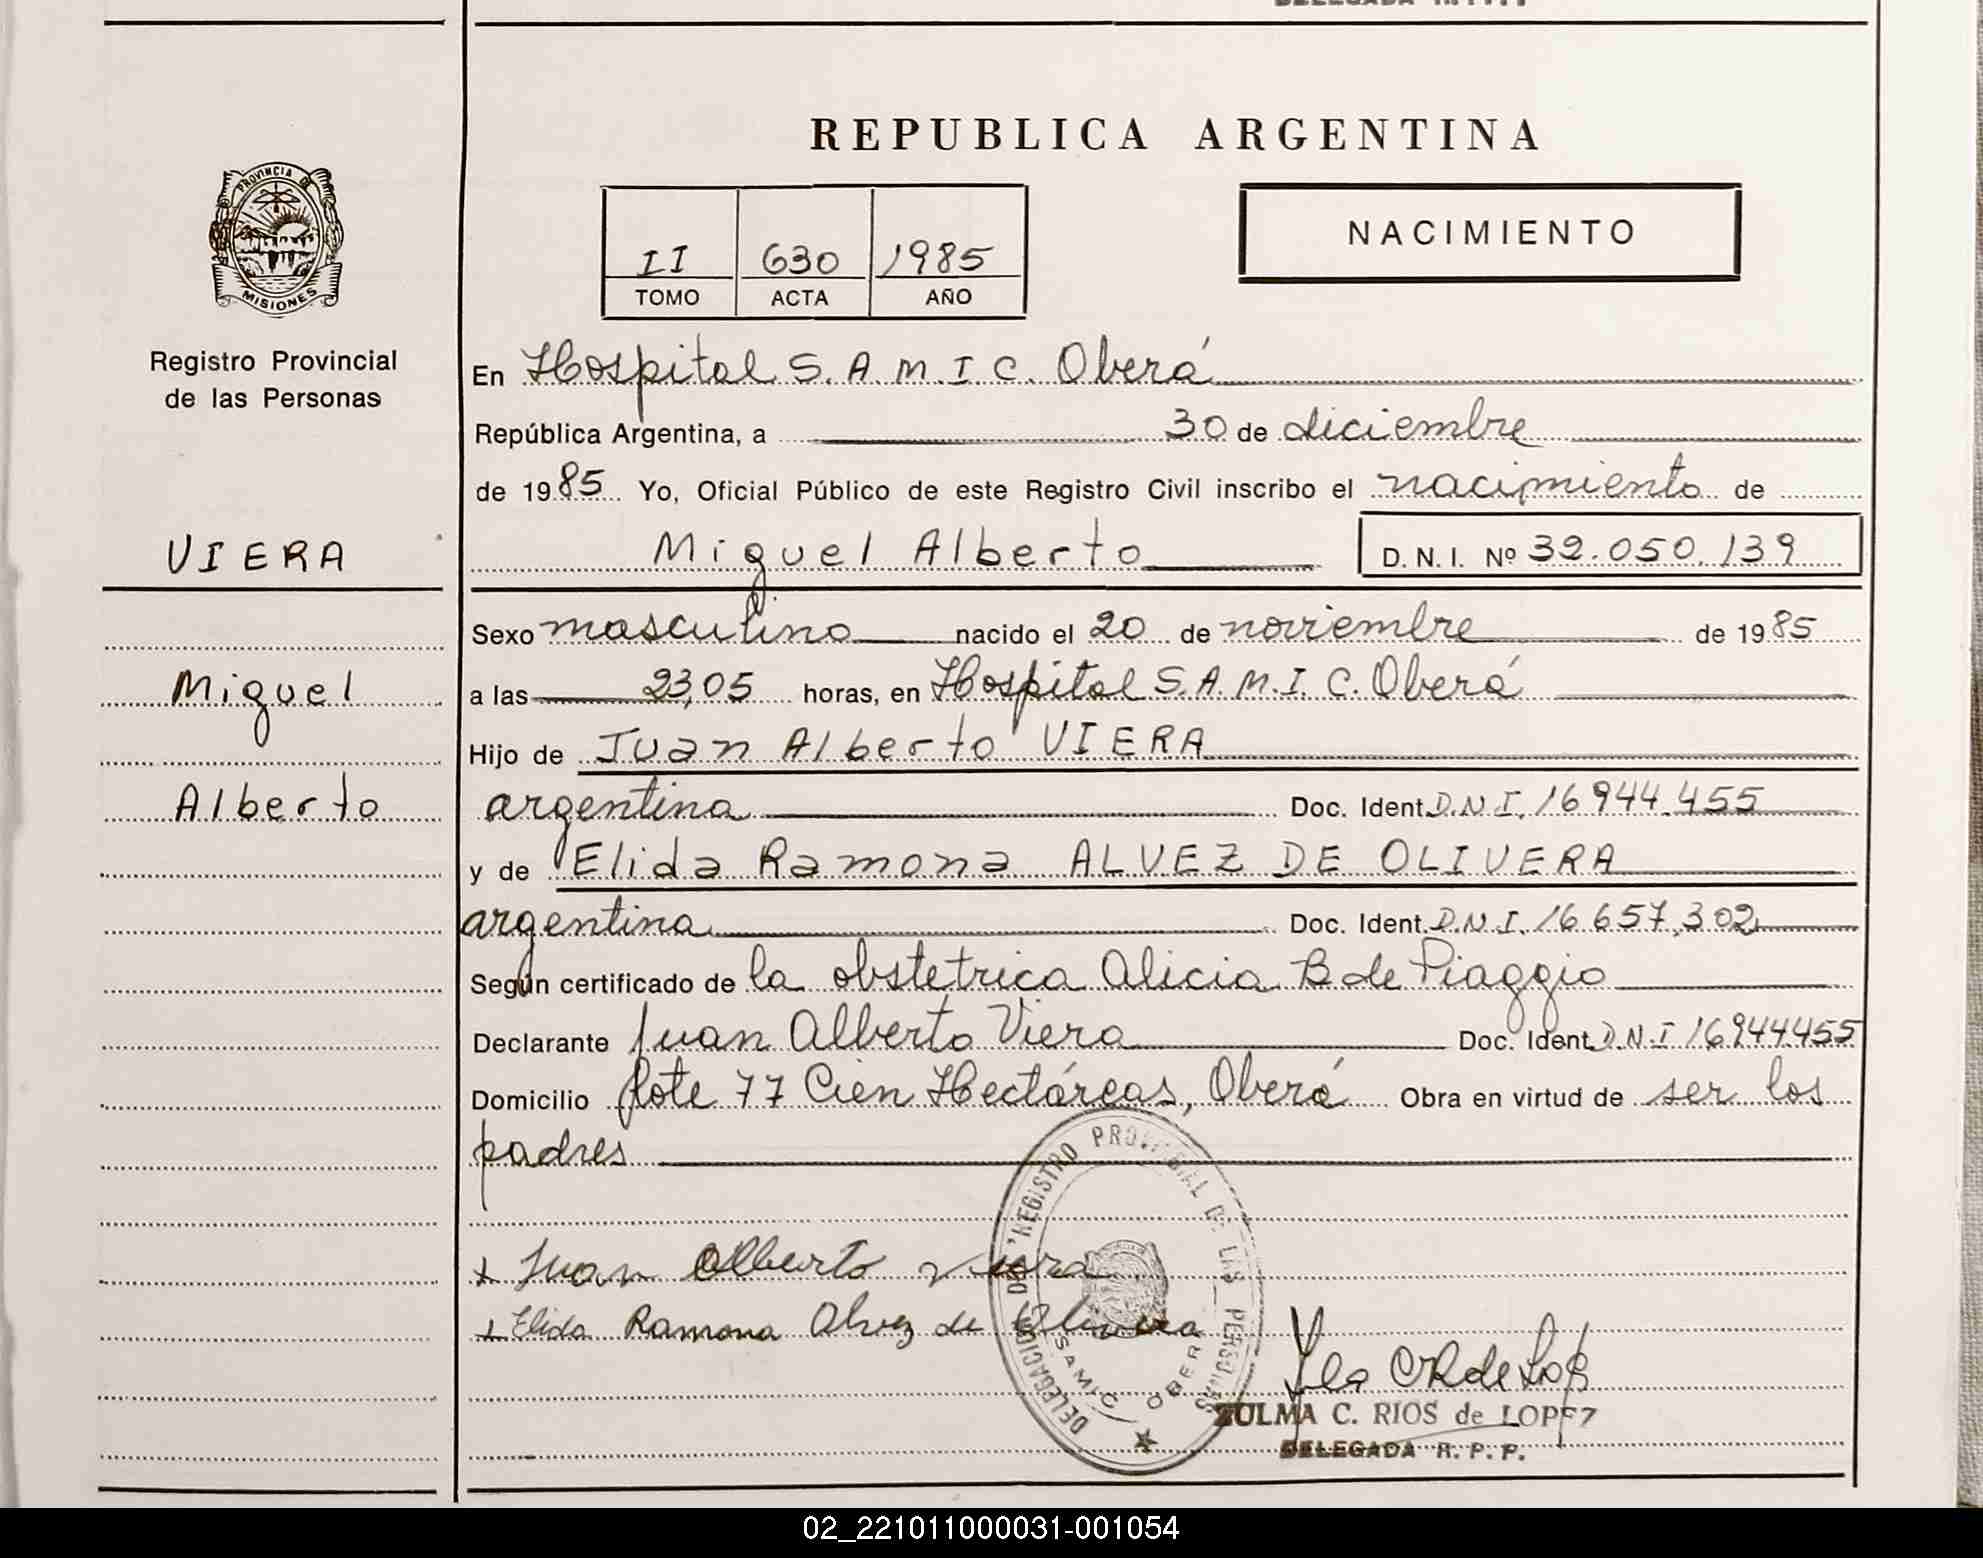 REPUBLICA ARGENTINA
PROVINCIA DE
MISIONES
Registro Provincial
de las Personas
II 630 1985
TOMO ACTA AÑO
NACIMIENTO
En Hospital S.A.M.I.C. Oberá
República Argentina, a 30 de diciembre
de 1985 Yo, Oficial Público de este Registro Civil inscribo el nacimiento de
VIERA
Miguel Alberto D.N.I. Nº 32.050.139
Sexo masculino nacido el 20 de noviembre de 1985
Miguel
a las 23,05 horas, en Hospital S.A.M.I.C. Oberá
Hijo de Juan Alberto VIERA
Alberto
argentina Doc. Ident. D.N.I. 16944.455
y de Elida Ramona ALVEZ DE OLIVERA
argentina Doc. Ident. D.N.I. 16.657.302
Según certificado de la obstetrica Alicia B de Piaggio
Declarante Juan Alberto Viera Doc. Ident. D.N.I 16944455
Domicilio lote 77 Cien Hectáreas, Oberá Obra en virtud de ser los
padres
Juan Alberto Viera
Elida Ramona Alvez de Olivera
DELEGACION DEL REGISTRO PROVINCIAL DE LAS PERSONAS
SAMIC OBERA
ZULMA C. RIOS de LOPEZ
DELEGADA R.P.P.
02_221011000031-001054